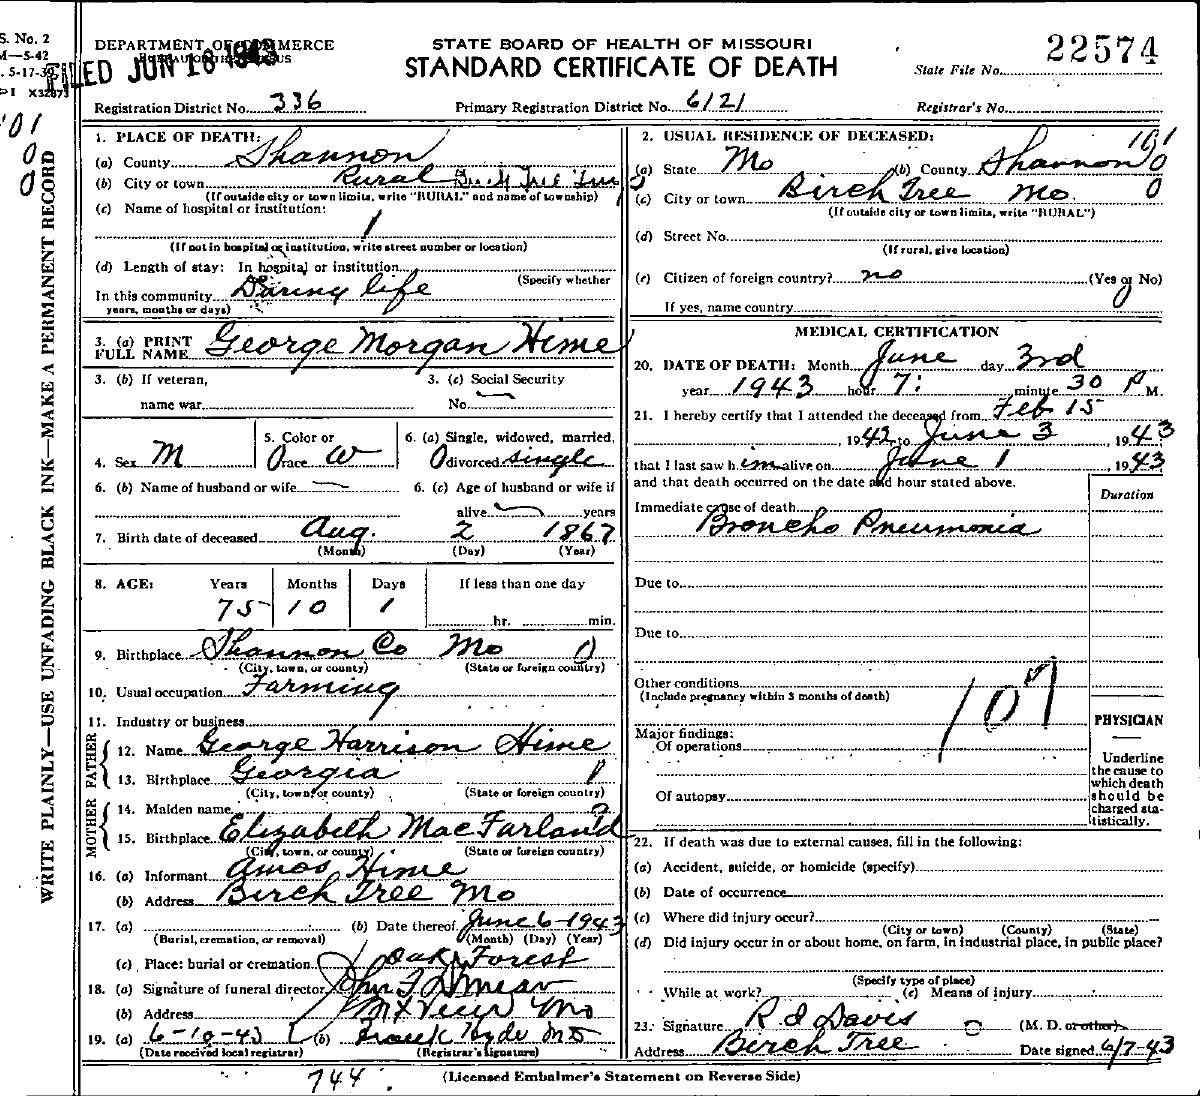 S. No. 2
M—5-42
5-17-39
X32873
DEPARTMENT OF COMMERCE
FILED JUN 18 1943
STATE BOARD OF HEALTH OF MISSOURI
STANDARD CERTIFICATE OF DEATH
State File No. 22574
Registration District No. 336
Primary Registration District No. 6121
Registrar's No.
WRITE PLAINLY—USE UNFADING BLACK INK—MAKE A PERMANENT RECORD
1. PLACE OF DEATH:
(a) County Shannon
(b) City or town Rural Birch Tree
(If outside city or town limits, write "RURAL" and name of township)
(c) Name of hospital or institution:
(If not in hospital or institution, write street number or location)
(d) Length of stay: In hospital or institution
(Specify whether
In this community During life
years, months or days)
3. (a) PRINT
FULL NAME George Morgan Hime
3. (b) If veteran,
name war
3. (c) Social Security
No.
4. Sex M
5. Color or
race W
6. (a) Single, widowed, married,
divorced single
6. (b) Name of husband or wife
6. (c) Age of husband or wife if
alive years
7. Birth date of deceased Aug. 2 1867
(Month) (Day) (Year)
8. AGE: Years Months Days If less than one day
75 10 1
hr. min.
9. Birthplace Shannon Co Mo
(City, town, or county) (State or foreign country)
10. Usual occupation Farming
11. Industry or business
FATHER
12. Name George Harrison Hime
13. Birthplace Georgia
(City, town, or county) (State or foreign country)
MOTHER
14. Maiden name ?
15. Birthplace Elizabeth MacFarland
(City, town, or county) (State or foreign country)
16. (a) Informant Amos Hime
(b) Address Birch Tree Mo
17. (a) (b) Date thereof June 6-1943
(Burial, cremation, or removal) (Month) (Day) (Year)
(c) Place: burial or cremation Oak Forest
18. (a) Signature of funeral director John F Duncan
(b) Address Mt View Mo
19. (a) 6-10-43 (b) Frank Hyde MD
(Date received local registrar) (Registrar's signature)
2. USUAL RESIDENCE OF DECEASED:
101
0
0
(a) State Mo (b) County Shannon 0
(c) City or town Birch Tree Mo. 0
(If outside city or town limits, write "RURAL")
(d) Street No.
(If rural, give location)
(e) Citizen of foreign country? no (Yes or No)
If yes, name country 0
MEDICAL CERTIFICATION
20. DATE OF DEATH: Month June day 3rd
year 1943 hour 7: minute 30 P M.
21. I hereby certify that I attended the deceased from Feb 15
1942 to June 3, 1943
that I last saw him alive on June 1, 1943
and that death occurred on the date and hour stated above.
Duration
Immediate cause of death
Broncho Pneumonia
Due to
Due to
Other conditions
(Include pregnancy within 3 months of death)
107
Major findings:
Of operations
Of autopsy
PHYSICIAN
Underline
the cause to
which death
should be
charged sta-
tistically.
22. If death was due to external causes, fill in the following:
(a) Accident, suicide, or homicide (specify)
(b) Date of occurrence
(c) Where did injury occur?
(City or town) (County) (State)
(d) Did injury occur in or about home, on farm, in industrial place, in public place?
(Specify type of place)
While at work? (e) Means of injury
23. Signature R d Davis (M. D. or other)
Address Birch Tree Date signed 6/7-43
744
(Licensed Embalmer's Statement on Reverse Side)